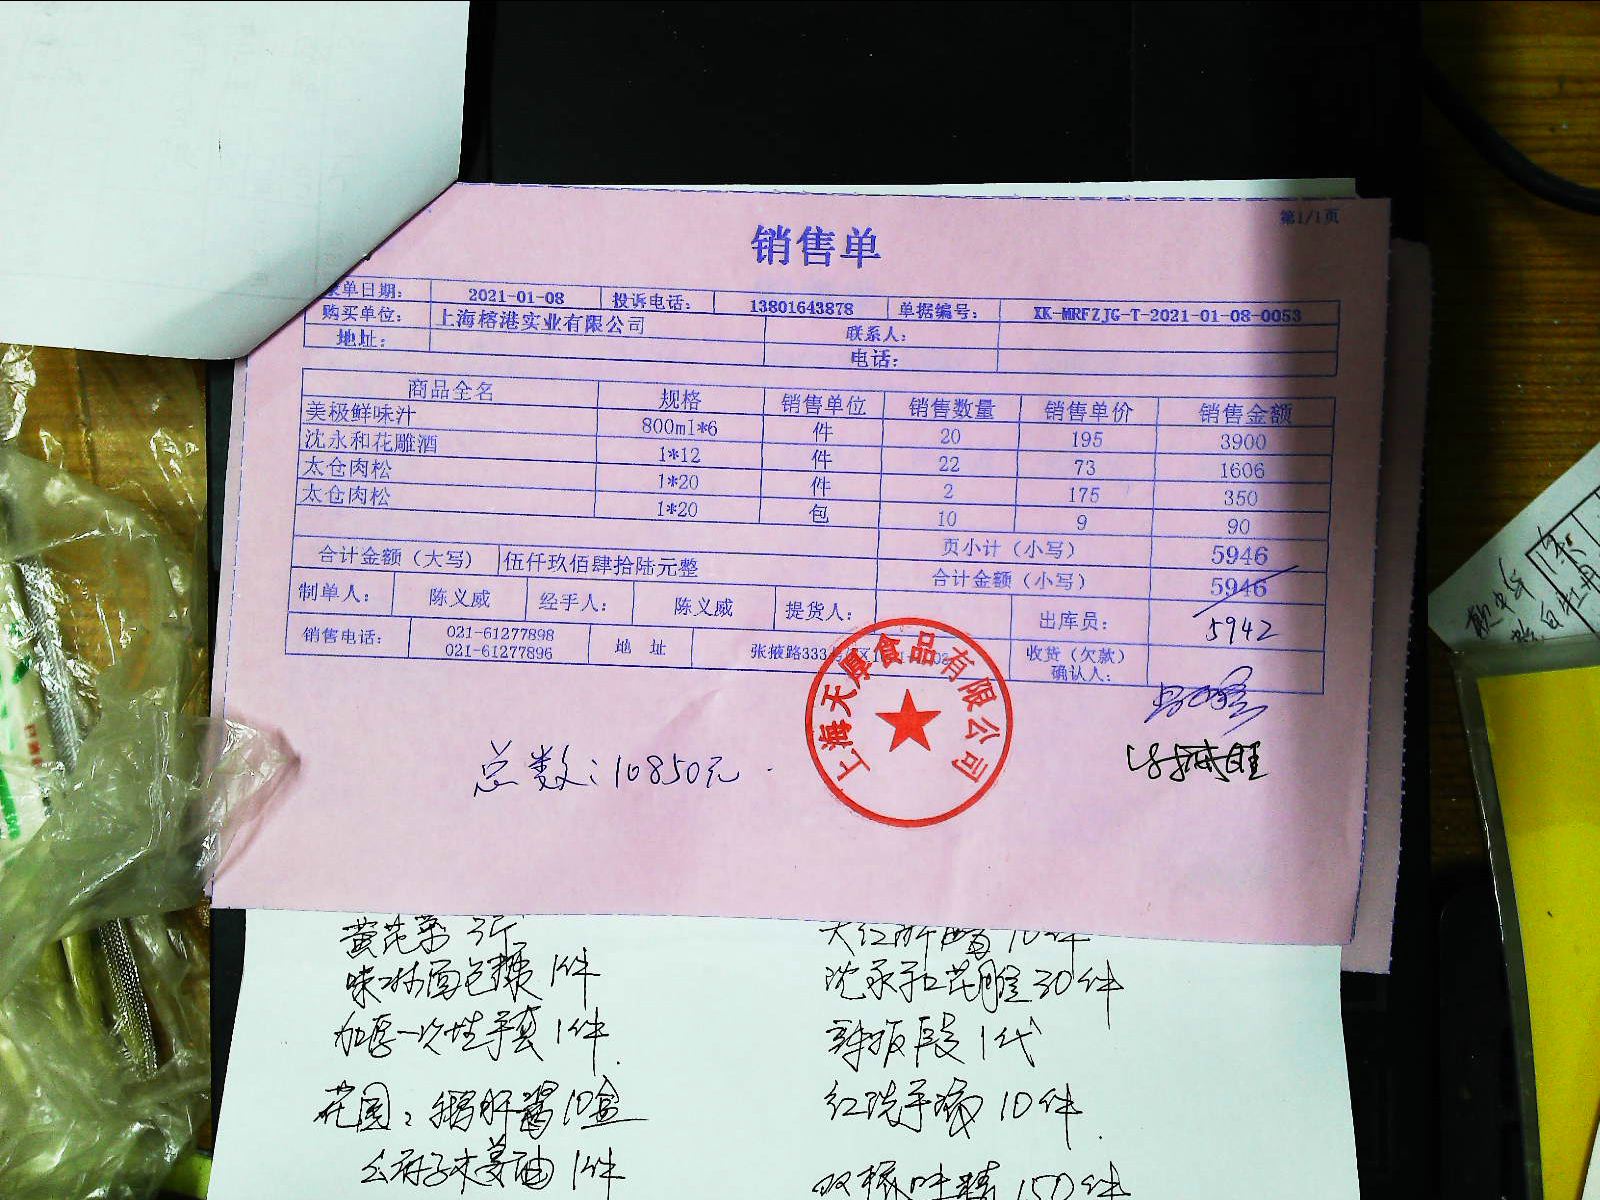 第1/1页
销售单
录单日期: 2021-01-08 投诉电话: 13801643878 单据编号: XK-MRFZJG-T-2021-01-08-0053
购买单位: 上海榕港实业有限公司 联系人:
地址: 电话:
商品全名 规格 销售单位 销售数量 销售单价 销售金额
美极鲜味汁 800ml*6 件 20 195 3900
沈永和花雕酒 1*12 件 22 73 1606
太仓肉松 1*20 件 2 175 350
太仓肉松 1*20 包 10 9 90
页小计（小写） 5946
合计金额（大写） 伍仟玖佰肆拾陆元整 合计金额（小写） 5946
制单人: 陈义威 经手人: 陈义威 提货人: 出库员: 5942
销售电话: 021-61277898 021-61277896 地 址 张掖路333号 收货（欠款）确认人:
上海天厚食品有限公司
总数:10850元
黄花菜
味淋面包糠 1件
加厚一次性手套 1件
花园: 鹅肝酱 10盒
木姜油 1件
10件
沈永和花雕 30件
1代
10件
味精 150件